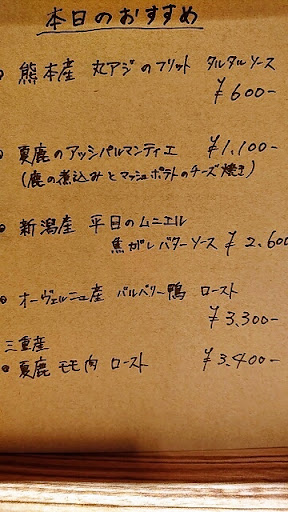 本日のおすすめ
熊本産 丸アジのフリット タルタルソース
¥600-
夏鹿のアッシパルマンティエ ¥1,100-
(鹿の煮込みとマッシュポテトのチーズ焼き)
新潟産 平目のムニエル
焦がしバターソース ¥2,600
オーヴェルニュ産 バルバリー鴨 ロースト
¥3,300-
三重産
夏鹿 モモ肉 ロースト ¥3,400-